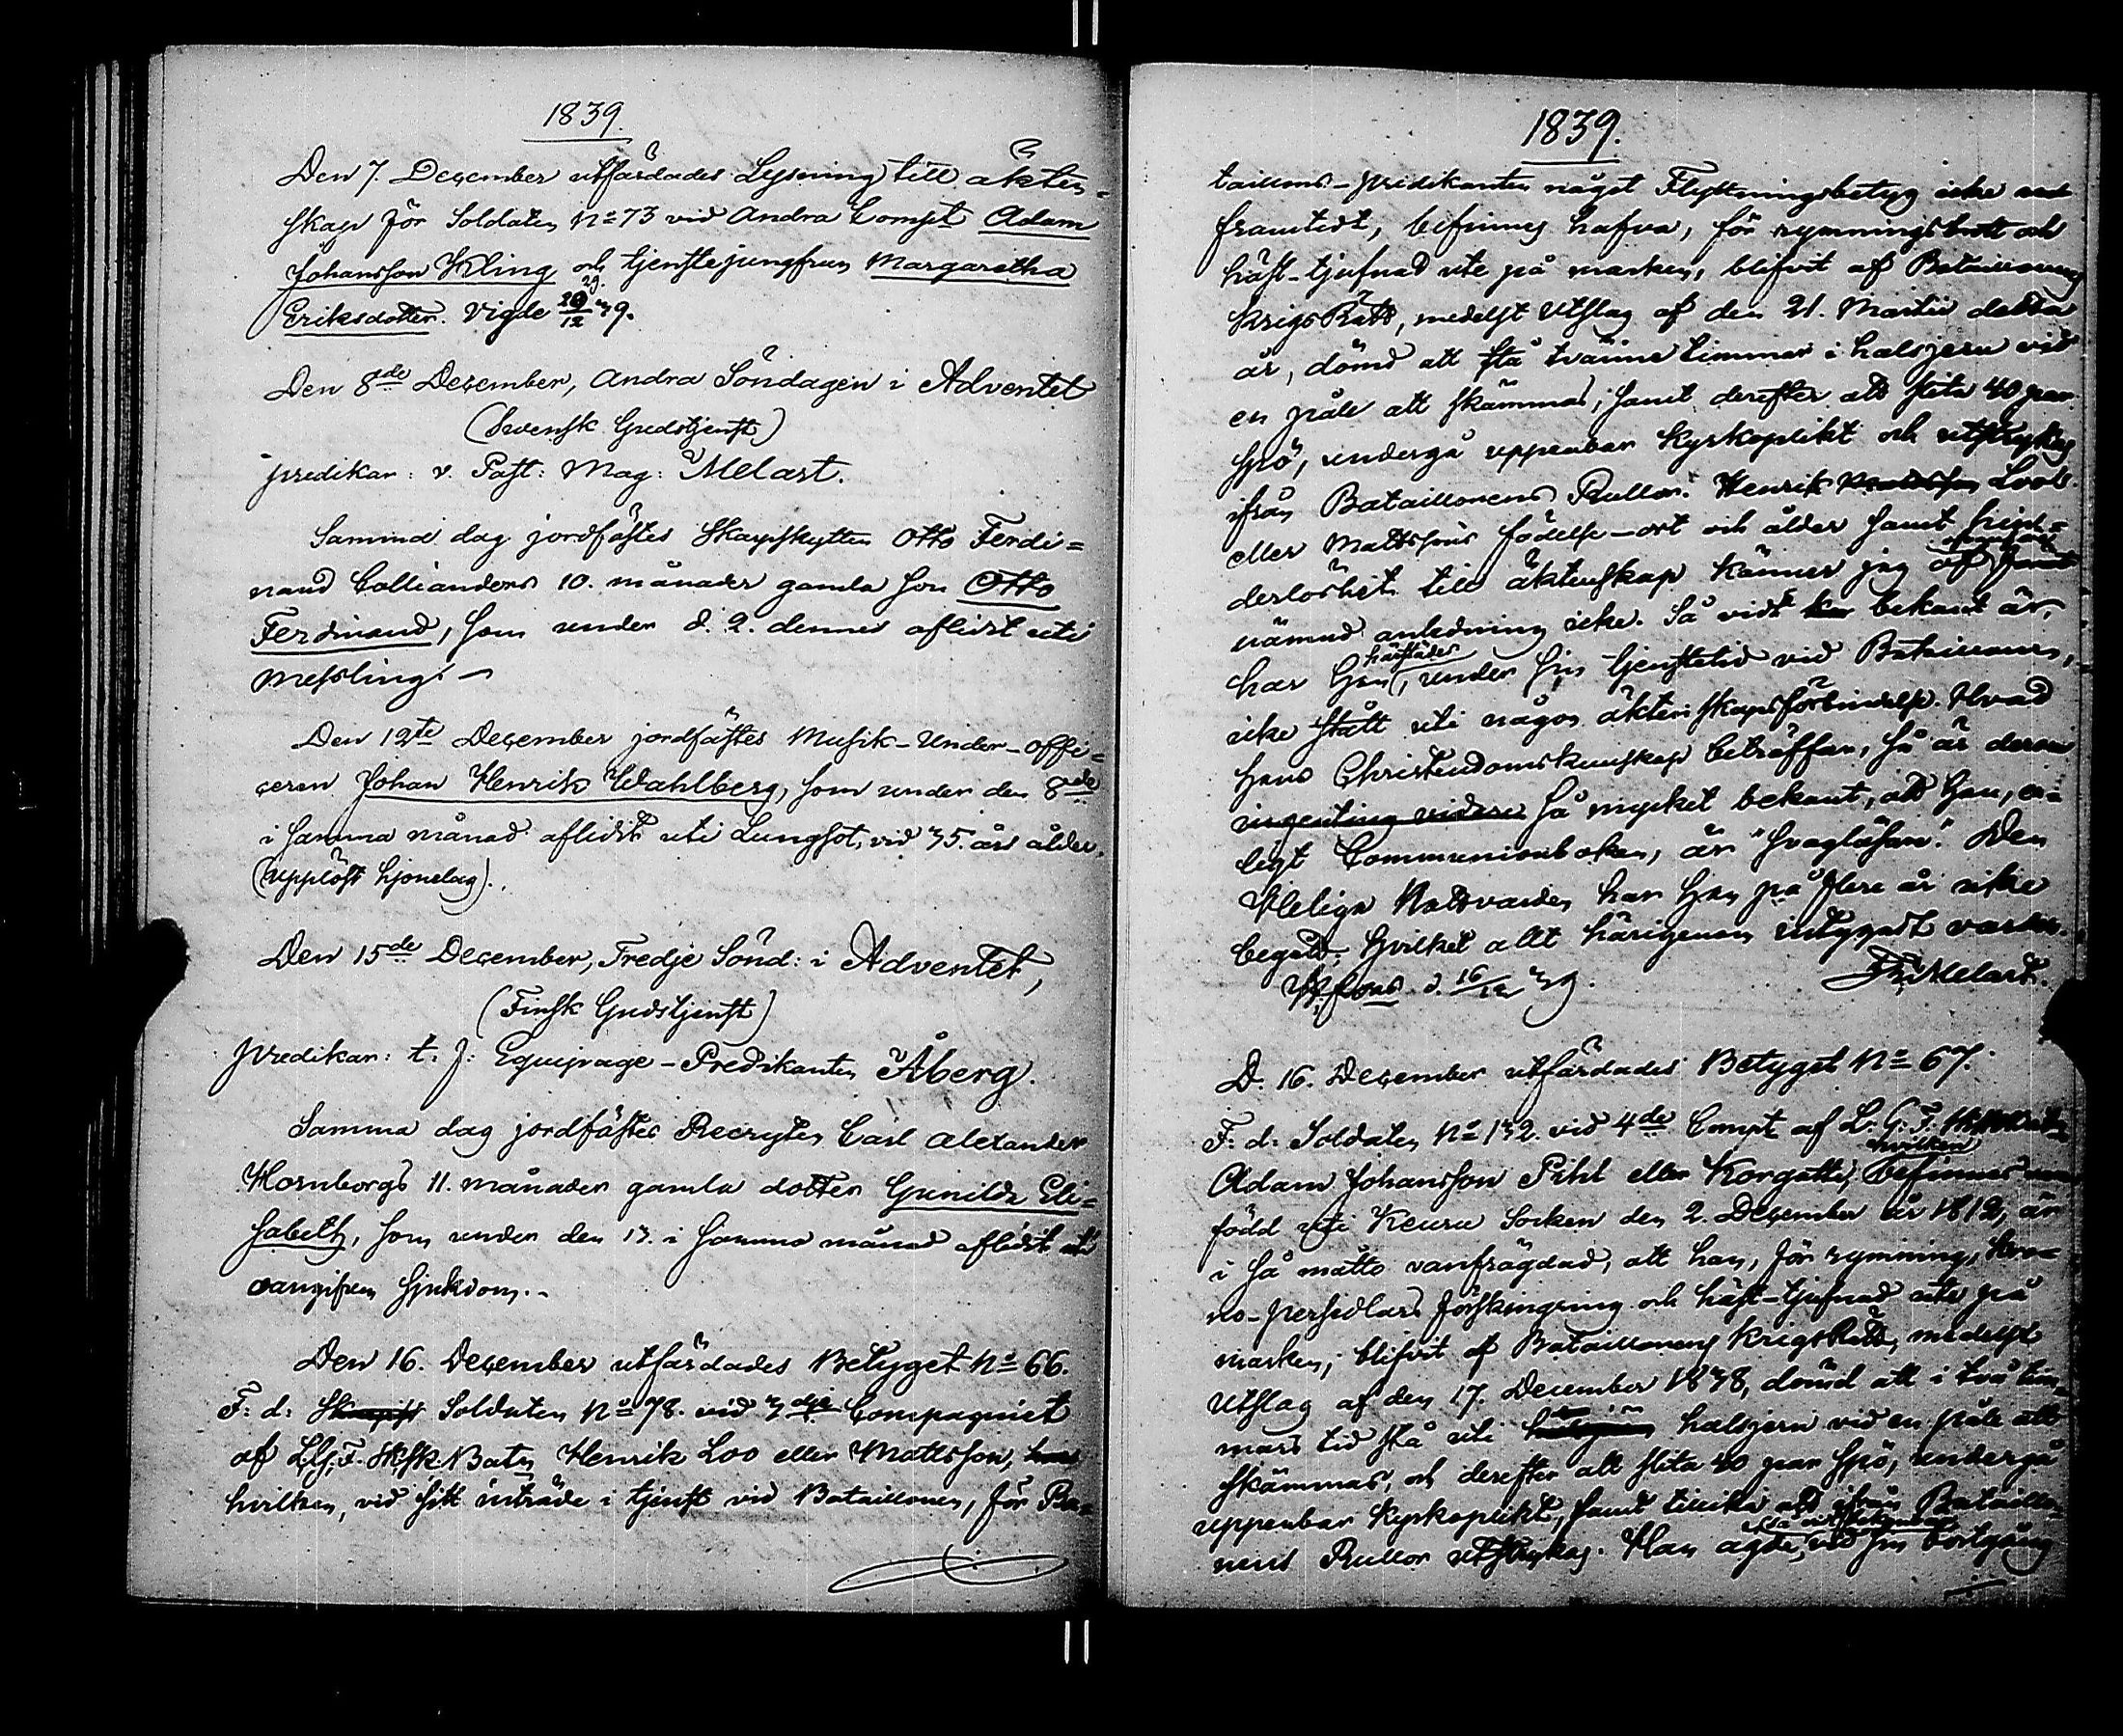 1839.
Den 7. December utfärdades Lysning till äkten=
skap för Soldaten No 73 vid Andra Compt Adam
Johansson Kling och tjenstejungfrun Margaretha
Eriksdotter. Vigde 29/12 39.
Den 8de December, Andra Söndagen i Adventet
(Svensk Gudstjenst)
predikar: v. Past: Mag: Melart.
Samma dag jordfästes Skarpskytten Otto Ferdi=
nand Callianders 10. månader gamla son Otto
Ferdinand, som under d. 2. dennes aflidit uti
Messling. –
Den 12te December jordfästes Musik-Under-offi=
ceren Johan Henrik Wahlberg, som under den 8de
i samma månad aflidit uti Lungsot, vid 35. års ålder.
(Upplöst hjonelag).
Den 15de December, Tredje Sönd: i Adventet,
(Finsk Gudstjenst)
predikar: t. f: Equipage-Predikanten Åberg.
Samma dag jordfästes Recryten Carl Alexander
Hornborgs 11. månader gamla dotter Gunilda Eli=
sabeth, som under den 13. i samma månad aflidit uti
oangifven sjukdom. –
Den 16. December utfärdades Betyget No 66.
F: d: Soldaten No 78. vid 3dje Compagniet
af L.G.F. Skrsk. Batn Henrik Loo eller Mattsson,
hvilken, vid sitt inträde i tjenst vid Bataillonen, för Ba=
1839.
taillons-predikanten något Flyttningsbetyg icke
framtedt, befinnes hafva, för rymningsbrott och
häst-tjufnad ute på marken, blifvit af Bataillonens
KrigsRätt, medelst Utslag af den 21. Martii detta
år, dömd att stå tvänne timmar i halsjern vid
en påle att skämmas, samt derefter att slita 40 par
spö, undergå uppenbar Kyrkoplikt och utstrykas
ifrån Bataillonens Rullor. Henrik Loos
eller Mattssons födelse-ort och ålder samt hin=
derlöshet till äktenskap känner jag af
nämnd anledning icke. Så vidt bekant är,
har Han härstädes, under sin tjenstetid vid Bataillonen,
icke stått uti någon äktenskapsförbindelse. Hvad
hans Christendomskunskap beträffar, så är derom
ingenting vidare så mycket bekant, att Han, en=
ligt Communionboken, är "svagläsare". Den
Heliga Nattvarden har Han på flere år icke
begått. Hvilket allt härigenom intygadt varder.
d. 16/12 39. Fr. Melart.
D. 16. December utfärdades Betyget No 67.
F: d: Soldaten No 132. vid 4de Compt af L. G. F.
Adam Johansson Pihl eller Korgatti, hvilken befinnes vara
född uti Keuru Socken den 2. December år 1812, är
i så måtto vanfrägdad, att han, för rymning, kro=
no-persedlars förskingring och häst-tjufnad ute på
marken, blifvit af Bataillonens KrigsRätt, medelst
Utslag af den 17. December 1838, dömd att i två tim=
mars tid stå uti halsjern vid en påle att
skämmas, och derefter att slita 40 par spö, undergå
uppenbar Kyrkoplikt, samt tillika att ifrån Bataillo=
nens Rullor utstrykas. Han ägde, vid sin bortgång